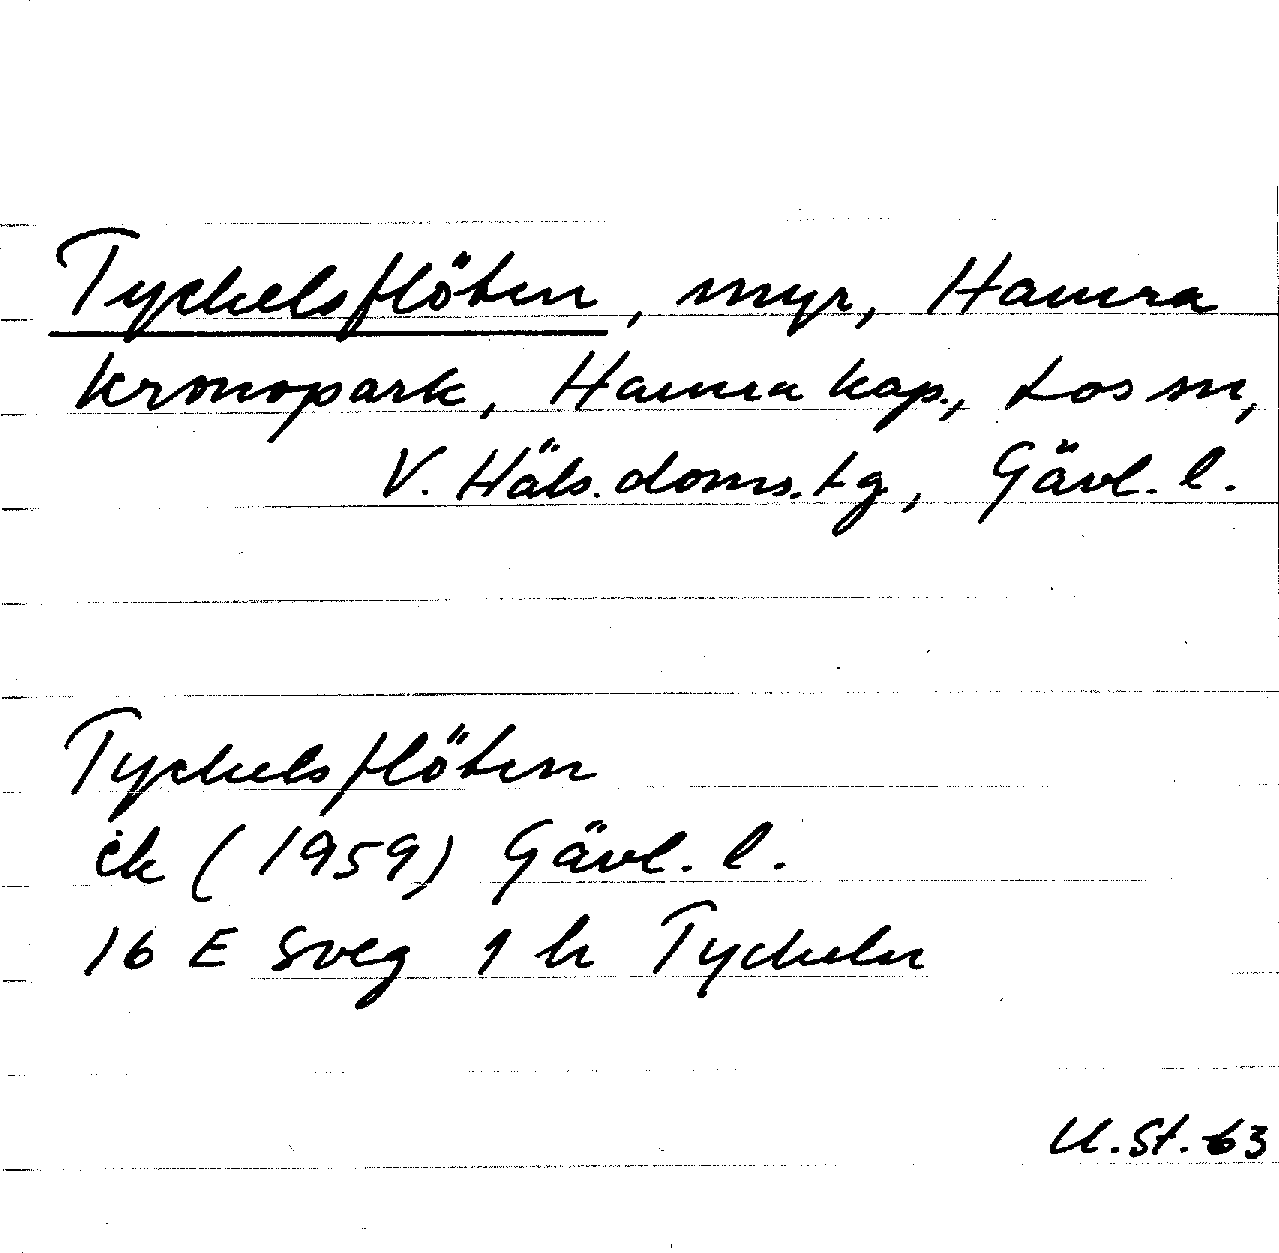 Tyckelsflöten, myr, Hamra
kronopark, Hamra kap., Los sn,
V. Häls. doms. tg, Gävl. l.
Tyckelsflöten
ek (1959) Gävl. l.
16 E Sveg 1 h Tyckeln
U. St. 63